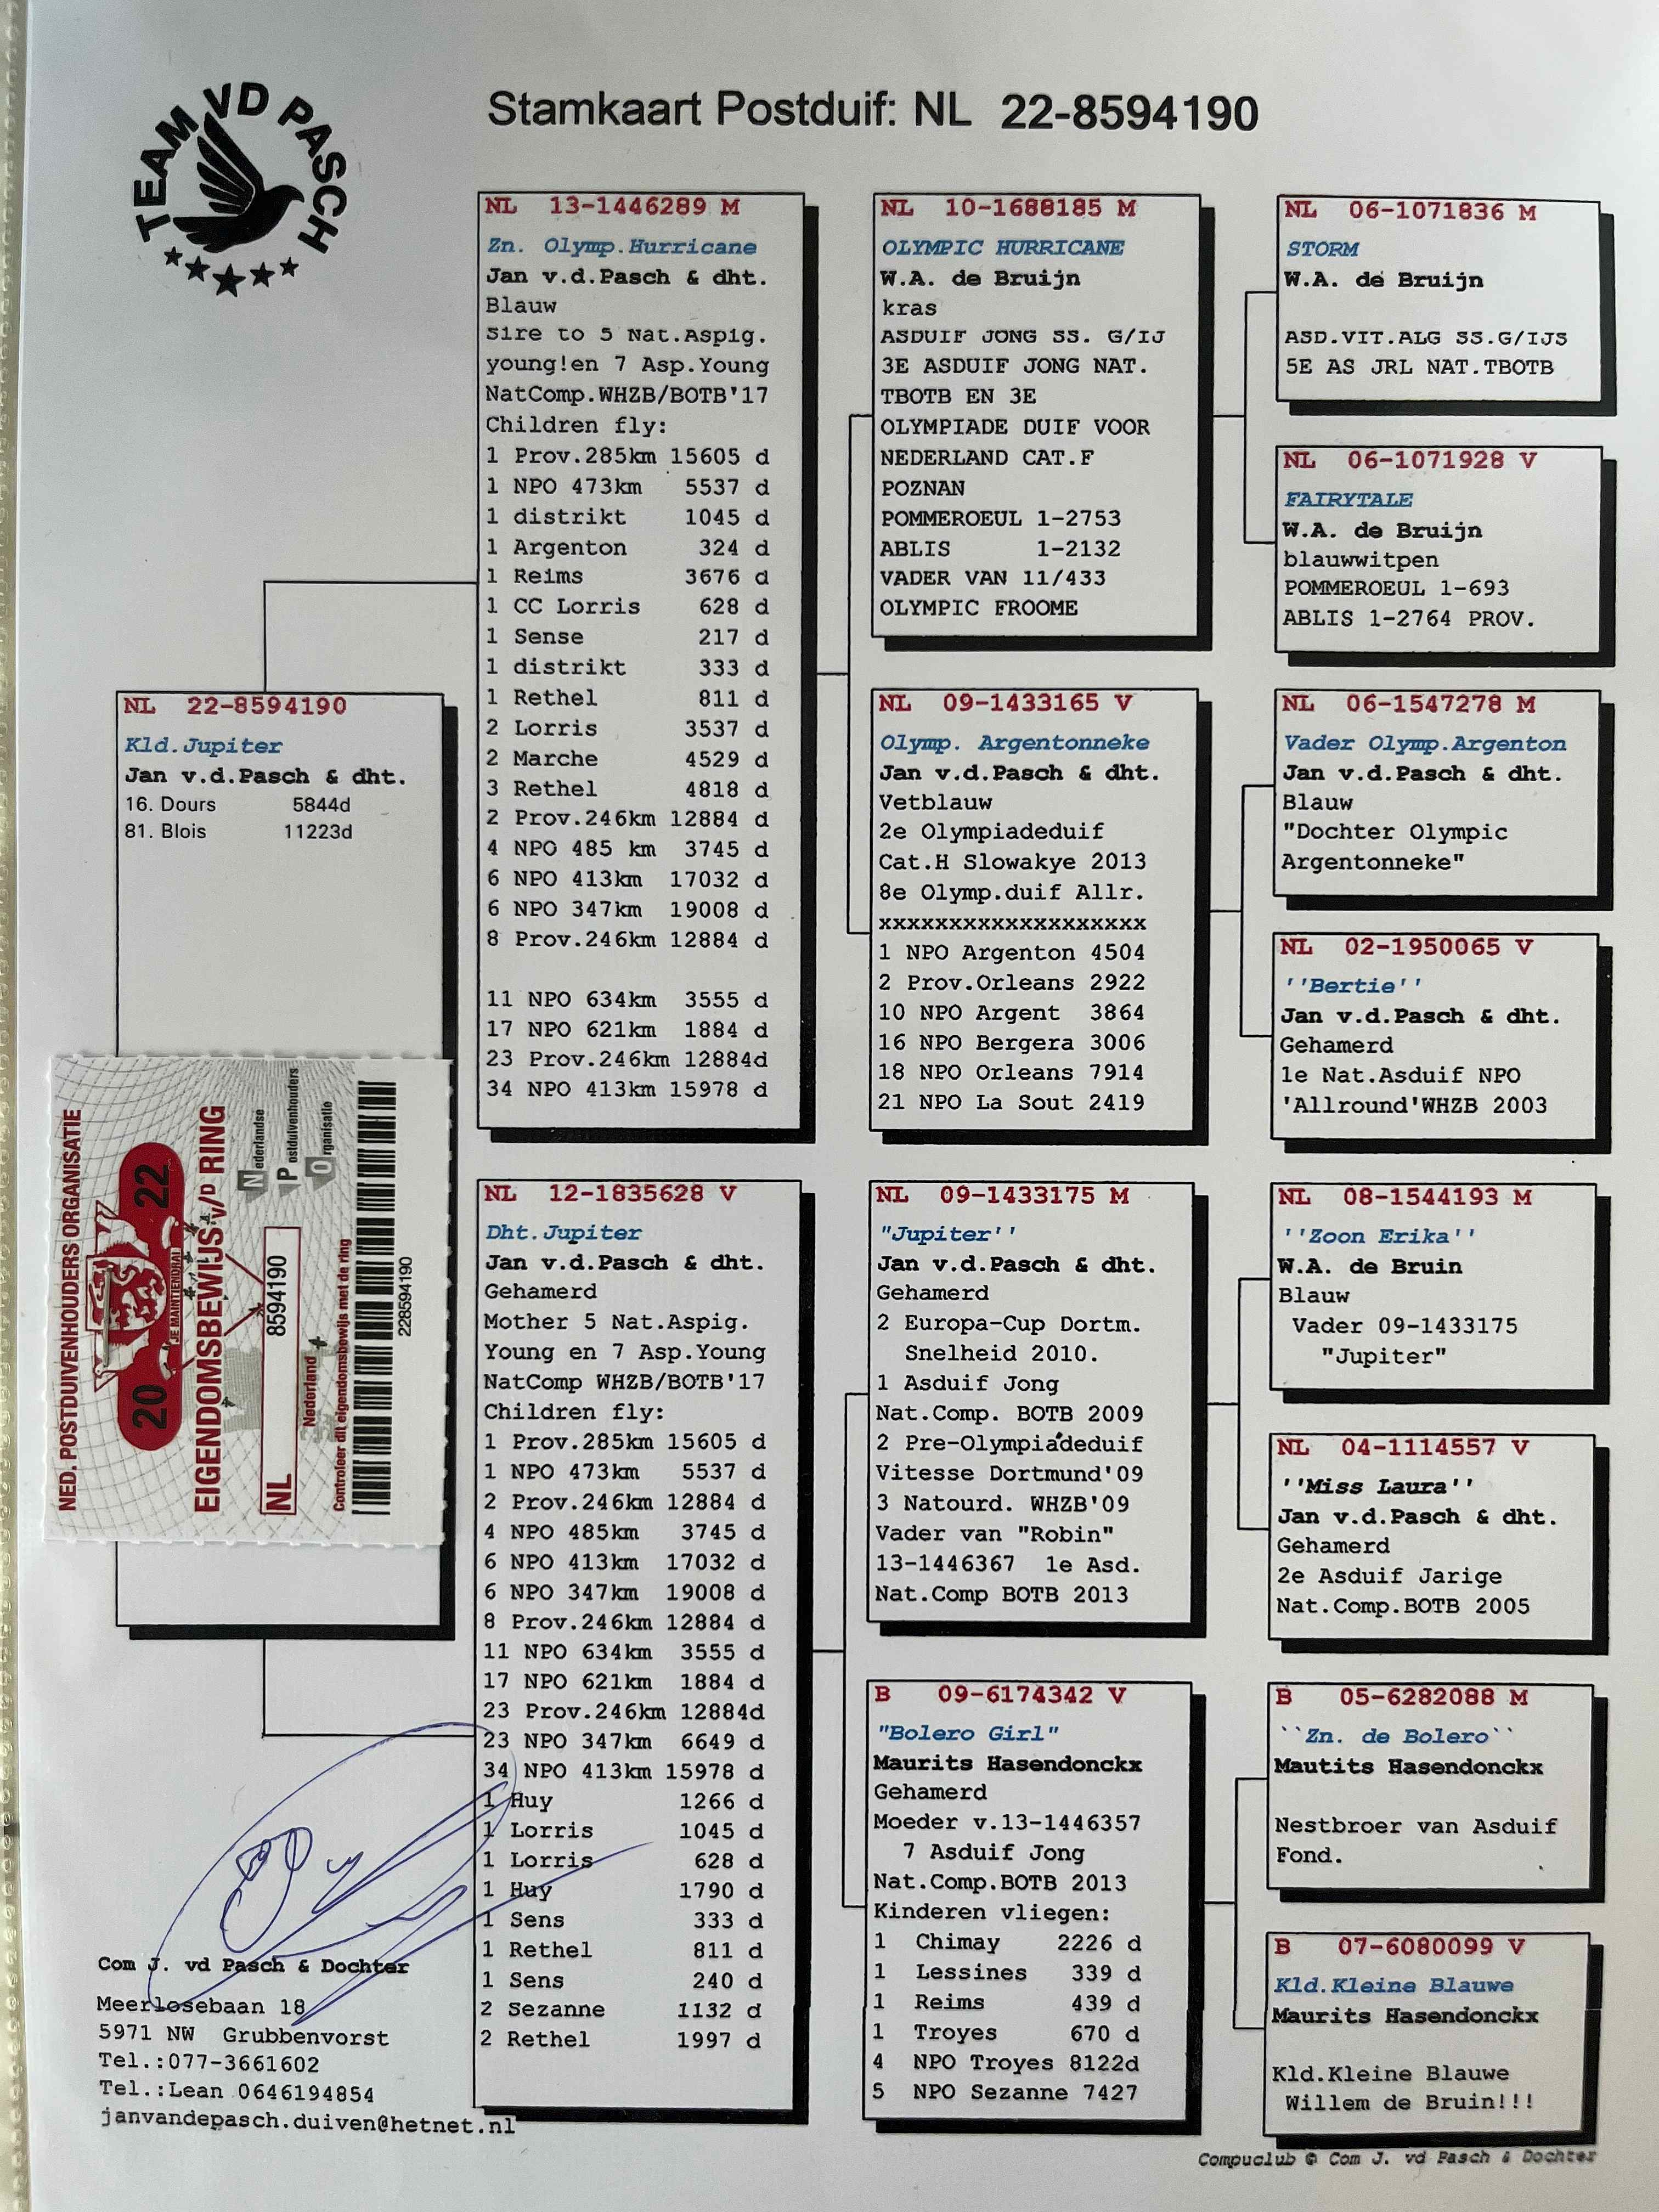 TEAM VD PASCH
Stamkaart Postduif: NL 22-8594190
NL 22-8594190
Kld.Jupiter
Jan v.d.Pasch & dht.
16. Dours 5844d
81. Blois 11223d
NED. POSTDUIVENHOUDERS ORGANISATIE
20 22
JE MAINTIENDRAI
EIGENDOMSBEWIJS v/d RING
Nederlandse
Postduivenhouders
Organisatie
NL 8594190
Nederland
Controleer dit eigendomsbewijs met de ring
228594190
NL 13-1446289 M
Zn. Olymp.Hurricane
Jan v.d.Pasch & dht.
Blauw
Sire to 5 Nat.Aspig.
young!en 7 Asp.Young
NatComp.WHZB/BOTB'17
Children fly:
1 Prov.285km 15605 d
1 NPO 473km 5537 d
1 distrikt 1045 d
1 Argenton 324 d
1 Reims 3676 d
1 CC Lorris 628 d
1 Sense 217 d
1 distrikt 333 d
1 Rethel 811 d
2 Lorris 3537 d
2 Marche 4529 d
3 Rethel 4818 d
2 Prov.246km 12884 d
4 NPO 485 km 3745 d
6 NPO 413km 17032 d
6 NPO 347km 19008 d
8 Prov.246km 12884 d
11 NPO 634km 3555 d
17 NPO 621km 1884 d
23 Prov.246km 12884d
34 NPO 413km 15978 d
NL 12-1835628 V
Dht.Jupiter
Jan v.d.Pasch & dht.
Gehamerd
Mother 5 Nat.Aspig.
Young en 7 Asp.Young
NatComp WHZB/BOTB'17
Children fly:
1 Prov.285km 15605 d
1 NPO 473km 5537 d
2 Prov.246km 12884 d
4 NPO 485km 3745 d
6 NPO 413km 17032 d
6 NPO 347km 19008 d
8 Prov.246km 12884 d
11 NPO 634km 3555 d
17 NPO 621km 1884 d
23 Prov.246km 12884d
23 NPO 347km 6649 d
34 NPO 413km 15978 d
1 Huy 1266 d
1 Lorris 1045 d
1 Lorris 628 d
1 Huy 1790 d
1 Sens 333 d
1 Rethel 811 d
1 Sens 240 d
2 Sezanne 1132 d
2 Rethel 1997 d
NL 10-1688185 M
OLYMPIC HURRICANE
W.A. de Bruijn
kras
ASDUIF JONG SS. G/IJ
3E ASDUIF JONG NAT.
TBOTB EN 3E
OLYMPIADE DUIF VOOR
NEDERLAND CAT.F
POZNAN
POMMEROEUL 1-2753
ABLIS 1-2132
VADER VAN 11/433
OLYMPIC FROOME
NL 09-1433165 V
Olymp. Argentonneke
Jan v.d.Pasch & dht.
Vetblauw
2e Olympiadeduif
Cat.H Slowakye 2013
8e Olymp.duif Allr.
xxxxxxxxxxxxxxxxxxx
1 NPO Argenton 4504
2 Prov.Orleans 2922
10 NPO Argent 3864
16 NPO Bergera 3006
18 NPO Orleans 7914
21 NPO La Sout 2419
NL 09-1433175 M
"Jupiter''
Jan v.d.Pasch & dht.
Gehamerd
2 Europa-Cup Dortm.
Snelheid 2010.
1 Asduif Jong
Nat.Comp. BOTB 2009
2 Pre-Olympiadeduif
Vitesse Dortmund'09
3 Natourd. WHZB'09
Vader van "Robin"
13-1446367 1e Asd.
Nat.Comp BOTB 2013
B 09-6174342 V
"Bolero Girl"
Maurits Hasendonckx
Gehamerd
Moeder v.13-1446357
7 Asduif Jong
Nat.Comp.BOTB 2013
Kinderen vliegen:
1 Chimay 2226 d
1 Lessines 339 d
1 Reims 439 d
1 Troyes 670 d
4 NPO Troyes 8122d
5 NPO Sezanne 7427
NL 06-1071836 M
STORM
W.A. de Bruijn
ASD.VIT.ALG SS.G/IJS
5E AS JRL NAT.TBOTB
NL 06-1071928 V
FAIRYTALE
W.A. de Bruijn
blauwwitpen
POMMEROEUL 1-693
ABLIS 1-2764 PROV.
NL 06-1547278 M
Vader Olymp.Argenton
Jan v.d.Pasch & dht.
Blauw
"Dochter Olympic
Argentonneke"
NL 02-1950065 V
''Bertie''
Jan v.d.Pasch & dht.
Gehamerd
1e Nat.Asduif NPO
'Allround'WHZB 2003
NL 08-1544193 M
''Zoon Erika''
W.A. de Bruin
Blauw
Vader 09-1433175
"Jupiter"
NL 04-1114557 V
''Miss Laura''
Jan v.d.Pasch & dht.
Gehamerd
2e Asduif Jarige
Nat.Comp.BOTB 2005
B 05-6282088 M
``Zn. de Bolero``
Mautits Hasendonckx
Nestbroer van Asduif
Fond.
B 07-6080099 V
Kld.Kleine Blauwe
Maurits Hasendonckx
Kld.Kleine Blauwe
Willem de Bruin!!!
Com J. vd Pasch & Dochter
Meerlosebaan 18
5971 NW Grubbenvorst
Tel.:077-3661602
Tel.:Lean 0646194854
janvandepasch.duiven@hetnet.nl
Compuclub © Com J. vd Pasch & Dochter